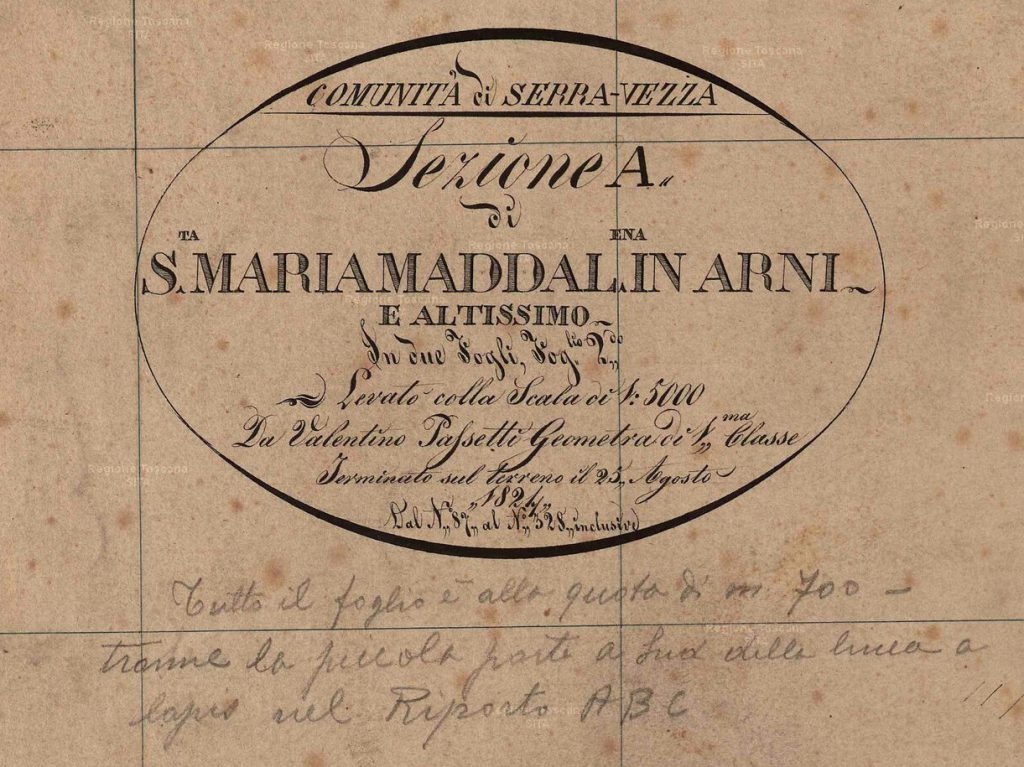 COMUNITÀ di SERRA-VEZZA
Sezione A.,,
di
S.TA MARIA MADDAL.ENA IN ARNI
E ALTISSIMO
In due Fogli, Fog.lio 2,,do
Levato colla Scala di 1: 5000
Da Valentino Passetti Geometra di 1,,ma Classe
Terminato sul terreno il 25,, Agosto
,,1824,,
Dal N.° 87,, al N.° 328,, inclusive
Tutto il foglio è alla quota di m. 700 –
tranne la piccola parte a Sud della linea a
lapis nel Riporto ABC
Regione Toscana
SITA